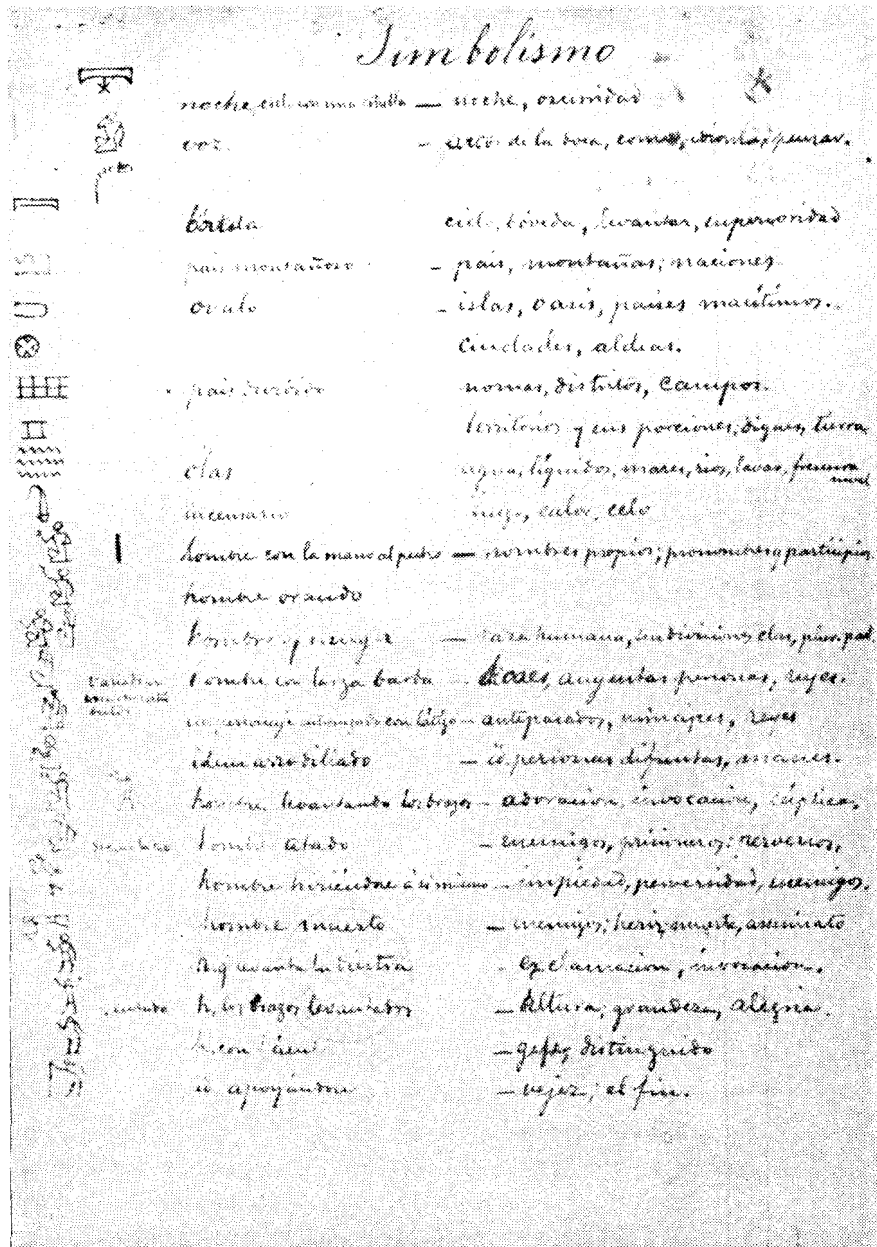 Simbolismo
noche, cielo con una estrella — noche, oscuridad
voz — actos de la boca, comer, pensar.
bóveda cielo, bóveda, levantar, superioridad
pais montañoso — pais, montañas; naciones
ovalo — islas, oasis, paises maritimos.
Ciudades, aldeas.
pais nomas, distritos, campos.
territorios y sus porciones, diques, tierra
olas agua, líquidos, mares, rios, lavar,
incensario fuego, calor, celo
hombre con la mano al pecho — nombres propios; pronombres y participios
hombre orando
hombre y muger — raza humana,
hombre con larga barba — dioses, augustas personas, reyes.
un personaje con látigo — antepasados, principes, reyes
idem arrodillado — id. personas difuntas, manes.
hombre levantando los brazos — adoracion, invocacion, súplica,
hombre atado — enemigos, prisioneros; perversos,
hombre hiriéndose á si mismo — impiedad, perversidad, enemigos.
hombre muerto — enemigos; herir, muerte, asesinato
h. q levanta la diestra — exclamacion, invocacion.
h. los brazos levantados — Altura, grandeza, alegria.
h. con — gefe, distinguido
id apoyándose — vejez; el fin.